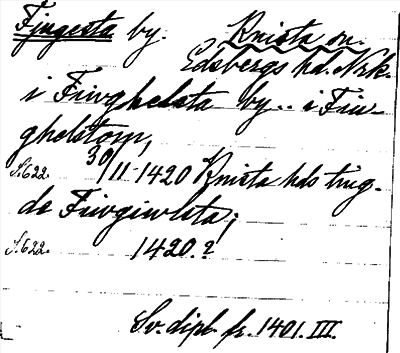 Fjugesta by. Knista sn.
Edsbergs hd. Nrk.
i Fiwghelsta by.. i Fiu-
ghelstom,
S. 622. 30/11 1420 Knista hds ting.
de Fiwgiwlsta;
S. 622. 1420.?
Sv. dipl. fr. 1401. III.